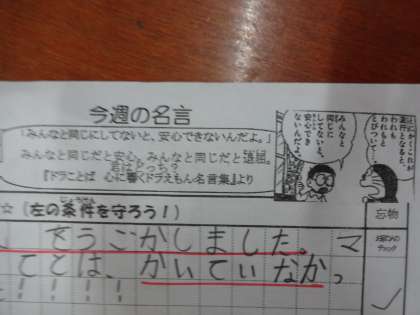 今週の名言
「みんなと同じにしてないと、安心できないんだよ。」
みんなと同じだと安心。みんなと同じだと退屈。
『ドラことば 心に響くドラえもん名言集』より
みんなと
同じに
してないと、
安心でき
ないんだよ。
☆(左の条件を守ろう!)
忘物
をうごかしました。マ
ことは、かいていなかっ
!!!!